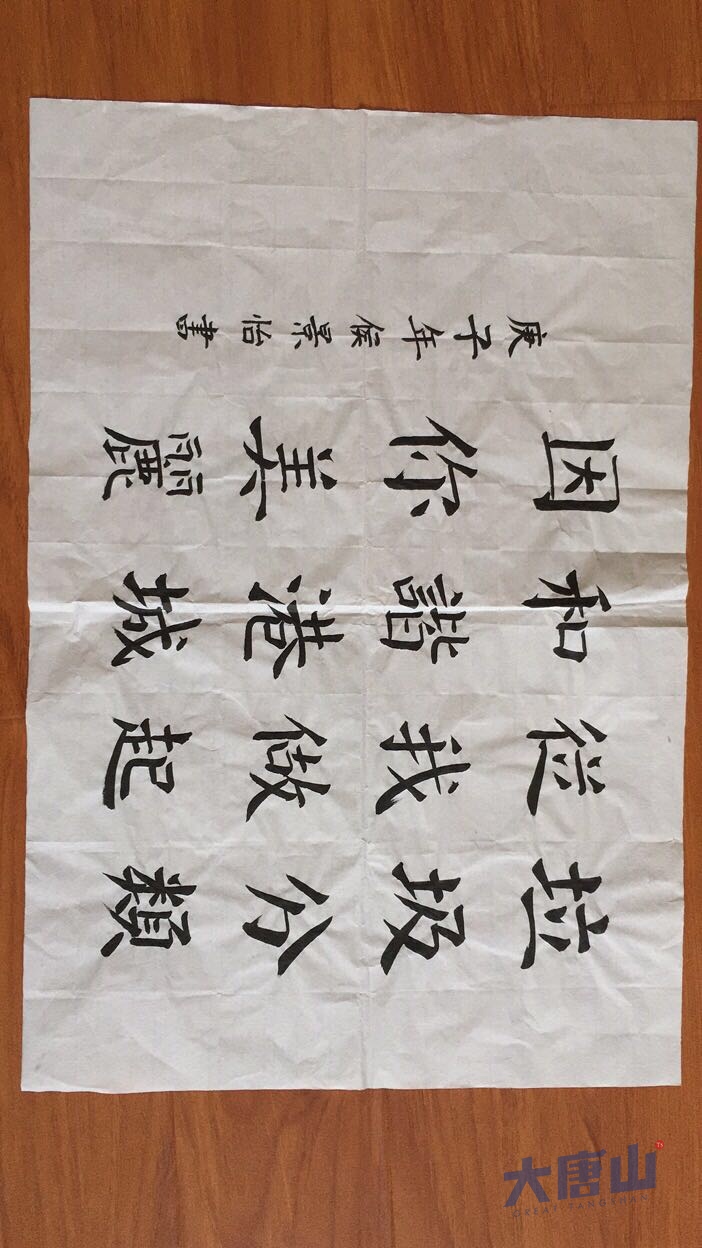 垃圾分類
從我做起
和諧港城
因你美麗
庚子年侯景怡書
大唐山
GREAT TANGSHAN